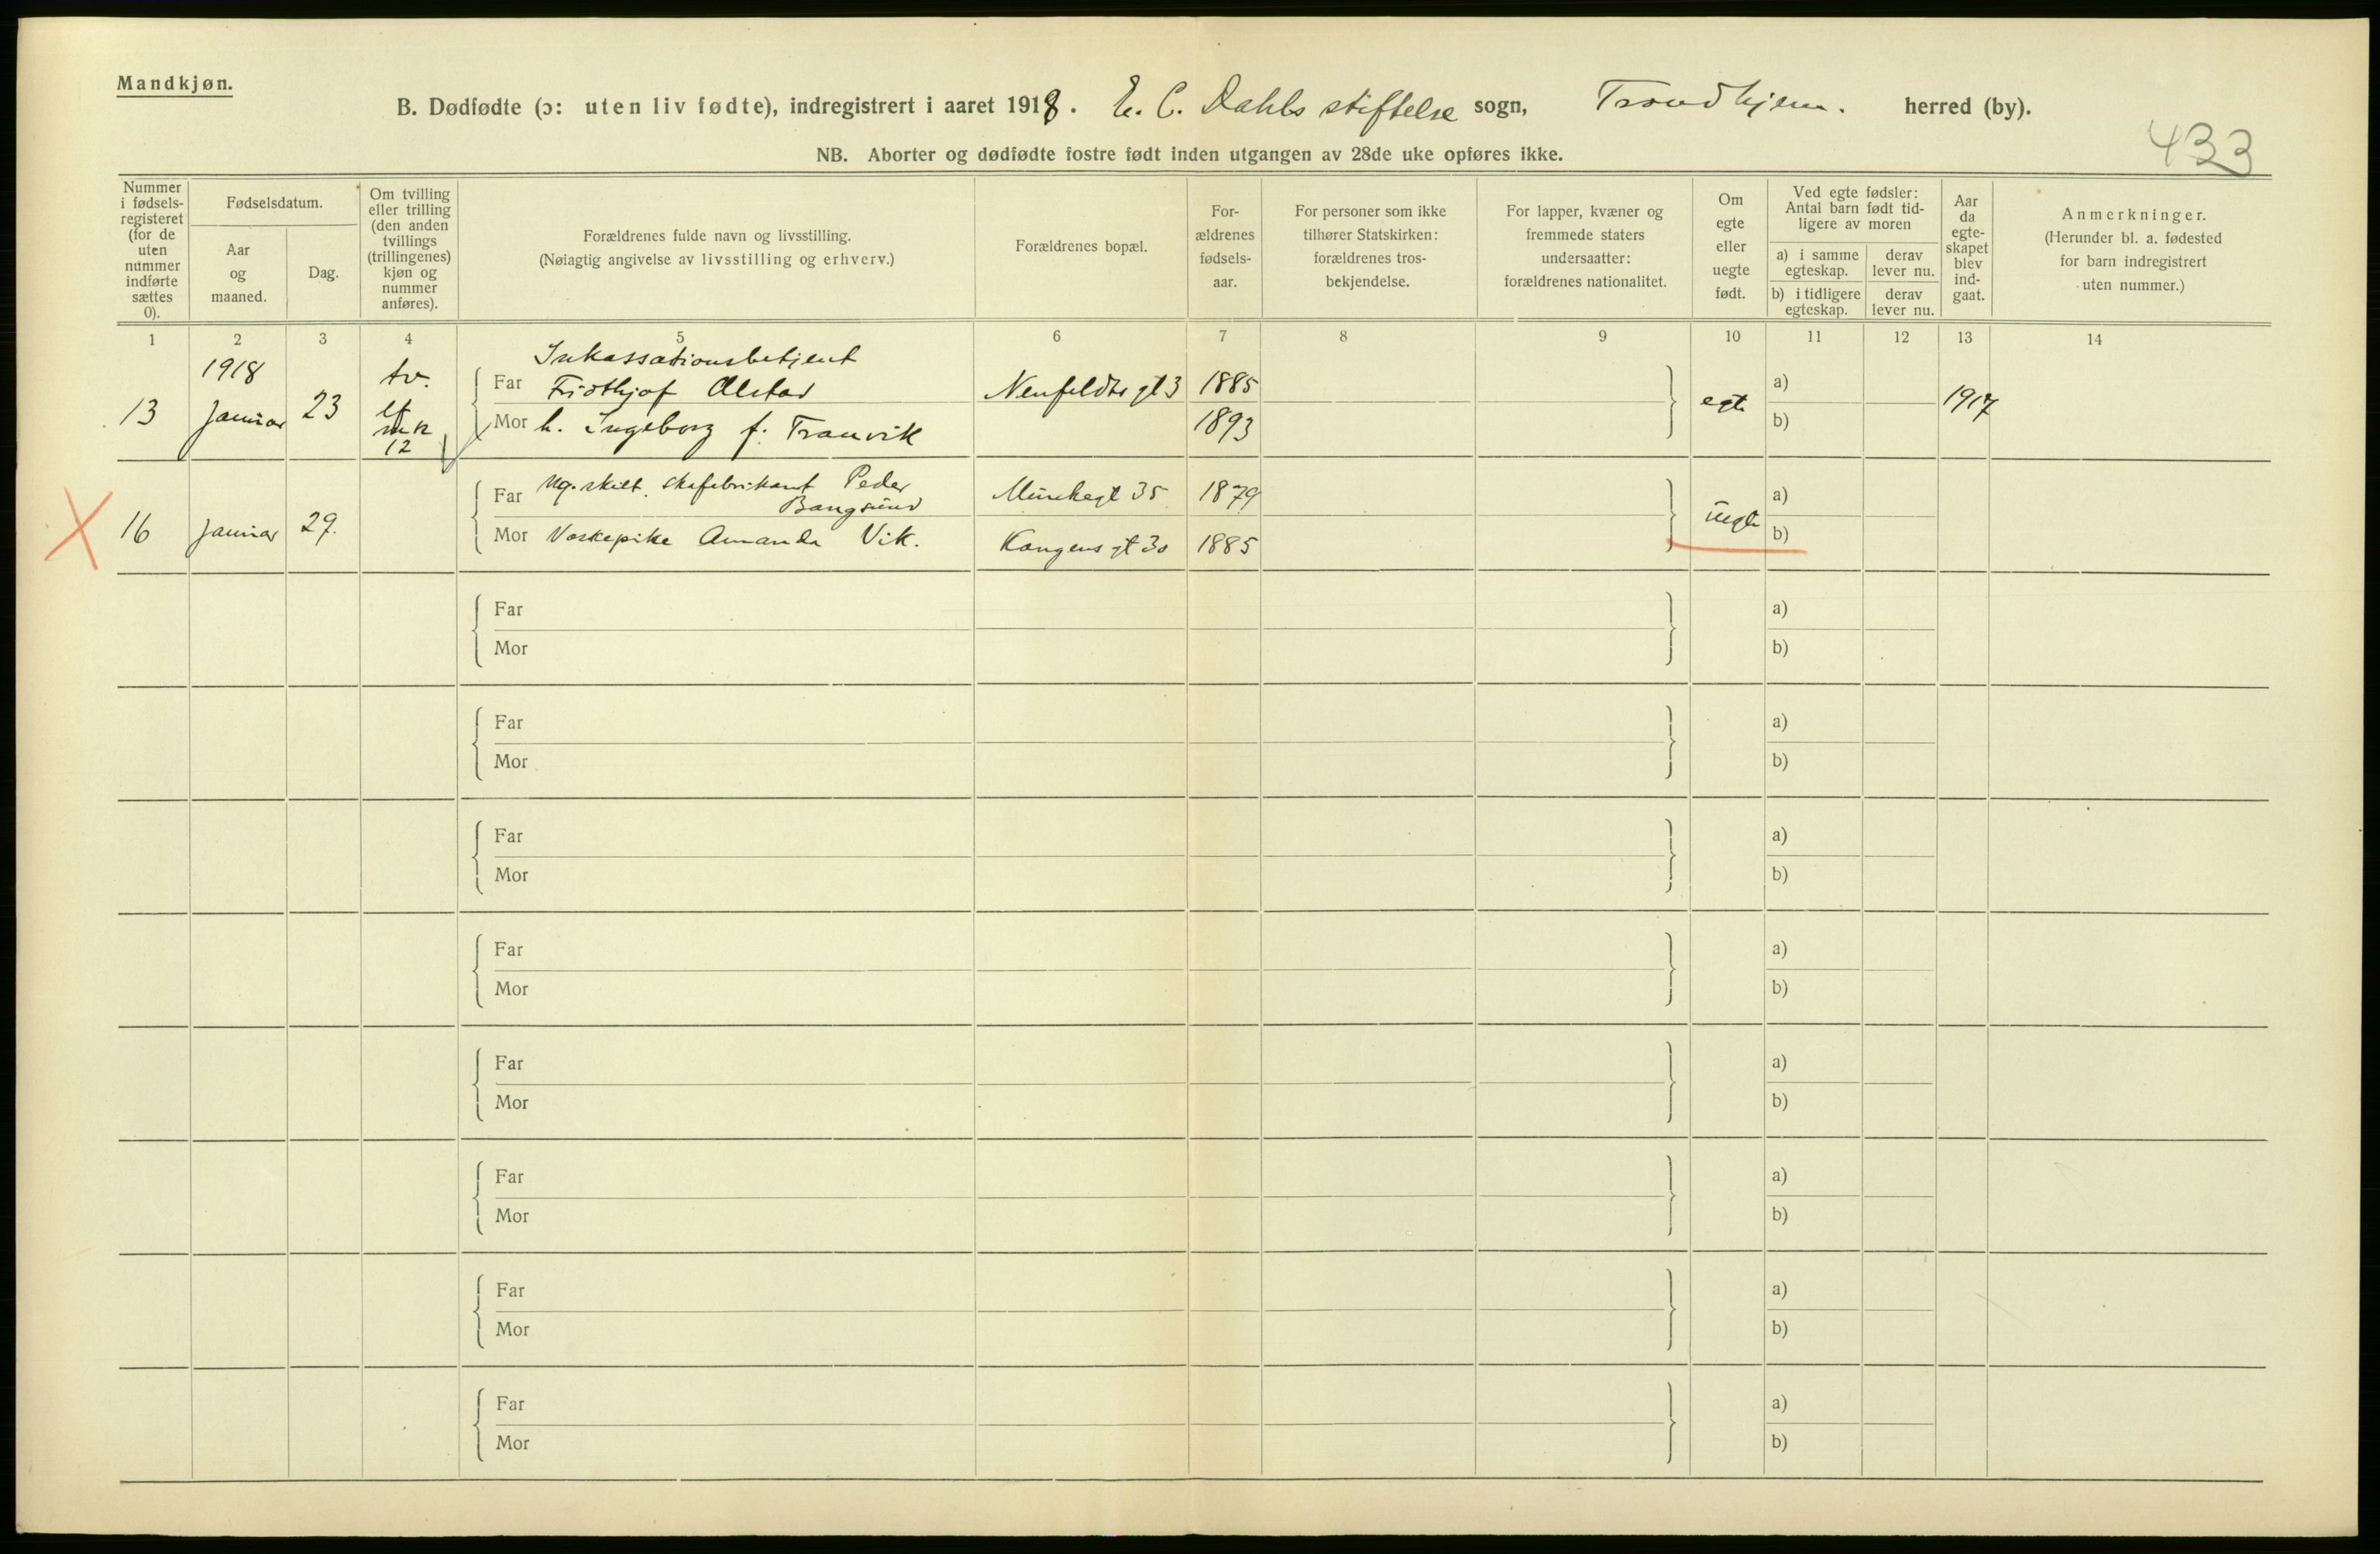 Mandkjøn.
B. Dødfødte (ɔ: uten liv fødte), indregistrert i aaret 1918. E. C. Dahls stiftelse sogn, Trondhjem. herred (by).
433
NB. Aborter og dødfødte fostre født inden utgangen av 28de uke opføres ikke.
Nummer i fødsels-registeret (for de uten nummer indførte sættes 0).
Fødselsdatum.
Aar og maaned.
Dag.
Om tvilling eller trilling (den anden tvillings (trillingenes) kjøn og nummer anføres).
Forældrenes fulde navn og livsstilling.
(Nøiagtig angivelse av livsstilling og erhverv.)
Forældrenes bopæl.
For-ældrenes fødsels-aar.
For personer som ikke tilhører Statskirken: forældrenes tros-bekjendelse.
For lapper, kvæner og fremmede staters undersaatter: forældrenes nationalitet.
Om egte eller uegte født.
Ved egte fødsler: Antal barn født tid-ligere av moren
a) i samme egteskap.
derav lever nu.
b) i tidligere egteskap.
derav lever nu.
Aar da egte-skapet blev ind-gaat.
Anmerkninger.
(Herunder bl. a. fødested for barn indregistrert uten nummer.)
1 2 3 4 5 6 7 8 9 10 11 12 13 14
1918 tv. Inkassationsbetjent
Far Fridthjof Alstad Neufeldts gt 3 1885 a)
13 Januar 23 egte 1917
Mor h. Ingeborg f. Tranvik 1893 b)
12
Far ug. skilt. Peder Bangsund Munkegt 35 1879 a)
16 Januar 29. uegte
Mor Vaskepike Amanda Vik. Kongens gt 30 1885 b)
Far a)
Mor b)
Far a)
Mor b)
Far a)
Mor b)
Far a)
Mor b)
Far a)
Mor b)
Far a)
Mor b)
Far a)
Mor b)
Far a)
Mor b)